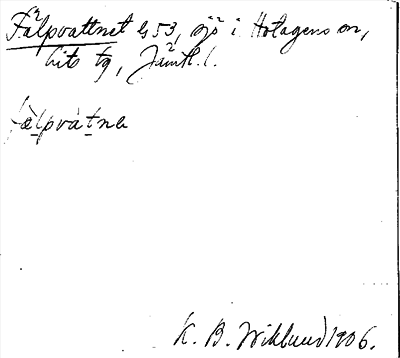 Fälpvattnet G 53, sjö i Hotagens sn,
Lits tg, Jämtl. l.
fælpvàtnⱥ
K. B. Wiklund 1906.